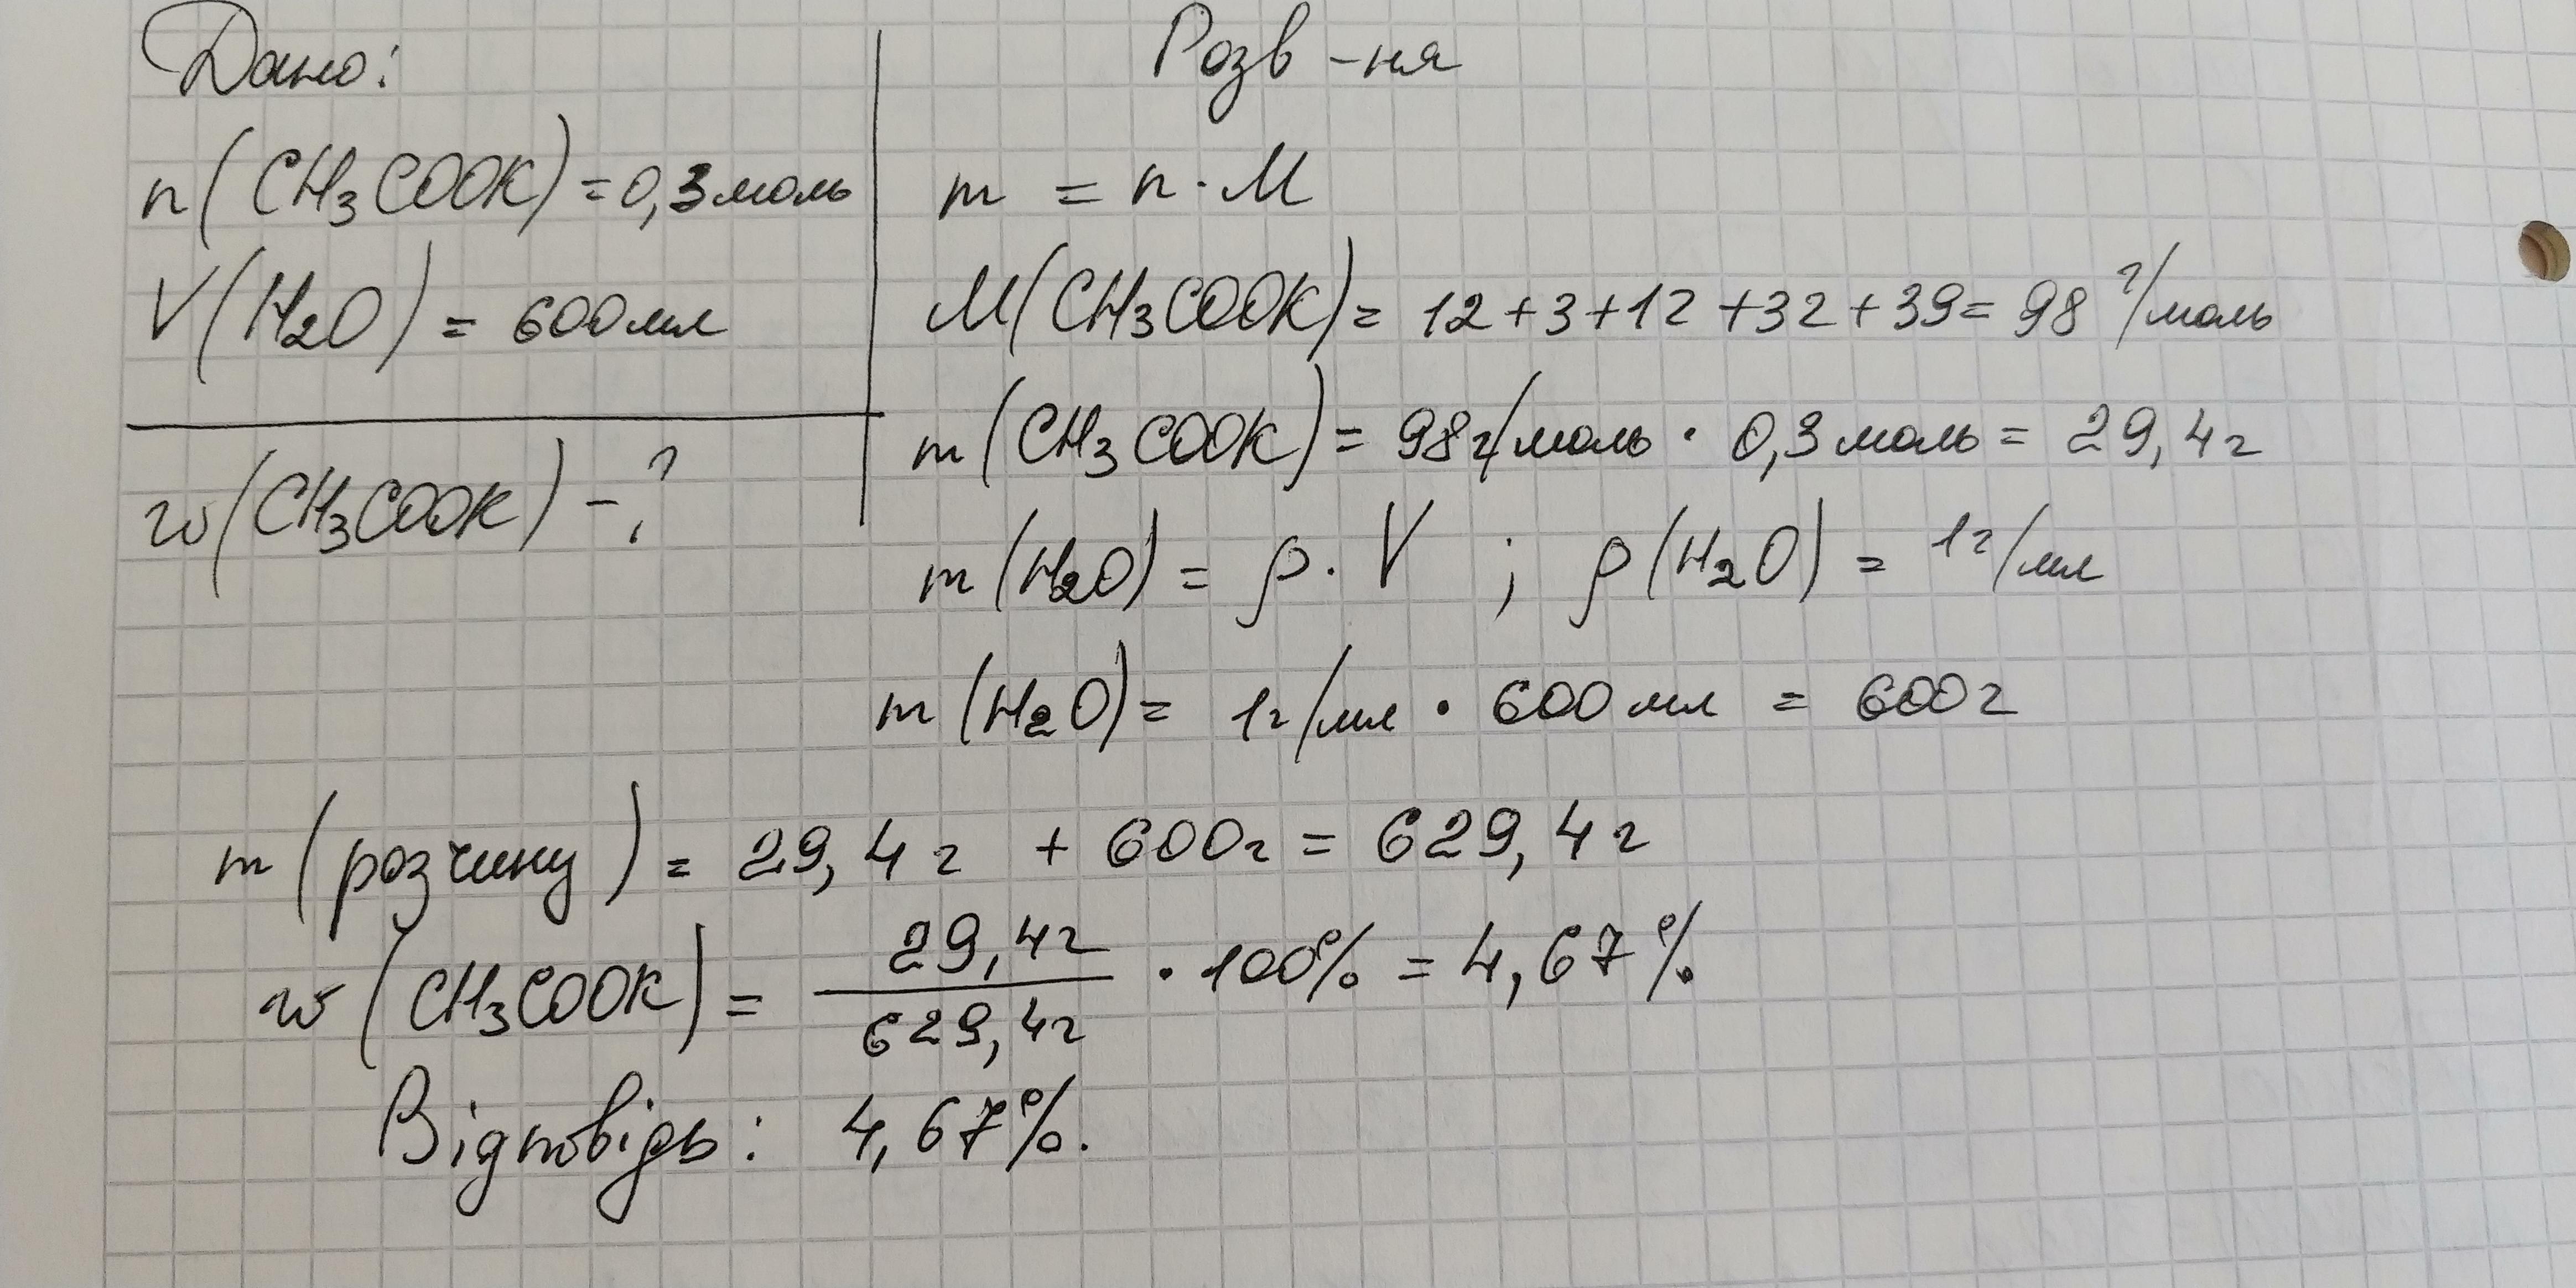 Дано:
n(CH₃COOK) = 0,3 моль
V(H₂O) = 600 мл
w(CH₃COOK) - ?
Розв-ня
m = n · M
M(CH₃COOK) = 12 + 3 + 12 + 32 + 39 = 98 г/моль
m(CH₃COOK) = 98 г/моль · 0,3 моль = 29,4 г
m(H₂O) = ρ · V ; ρ(H₂O) = 1 г/мл
m(H₂O) = 1 г/мл · 600 мл = 600 г
m(розчину) = 29,4 г + 600 г = 629,4 г
w(CH₃COOK) = 29,4 г / 629,4 г · 100% = 4,67 %
Відповідь: 4,67%.